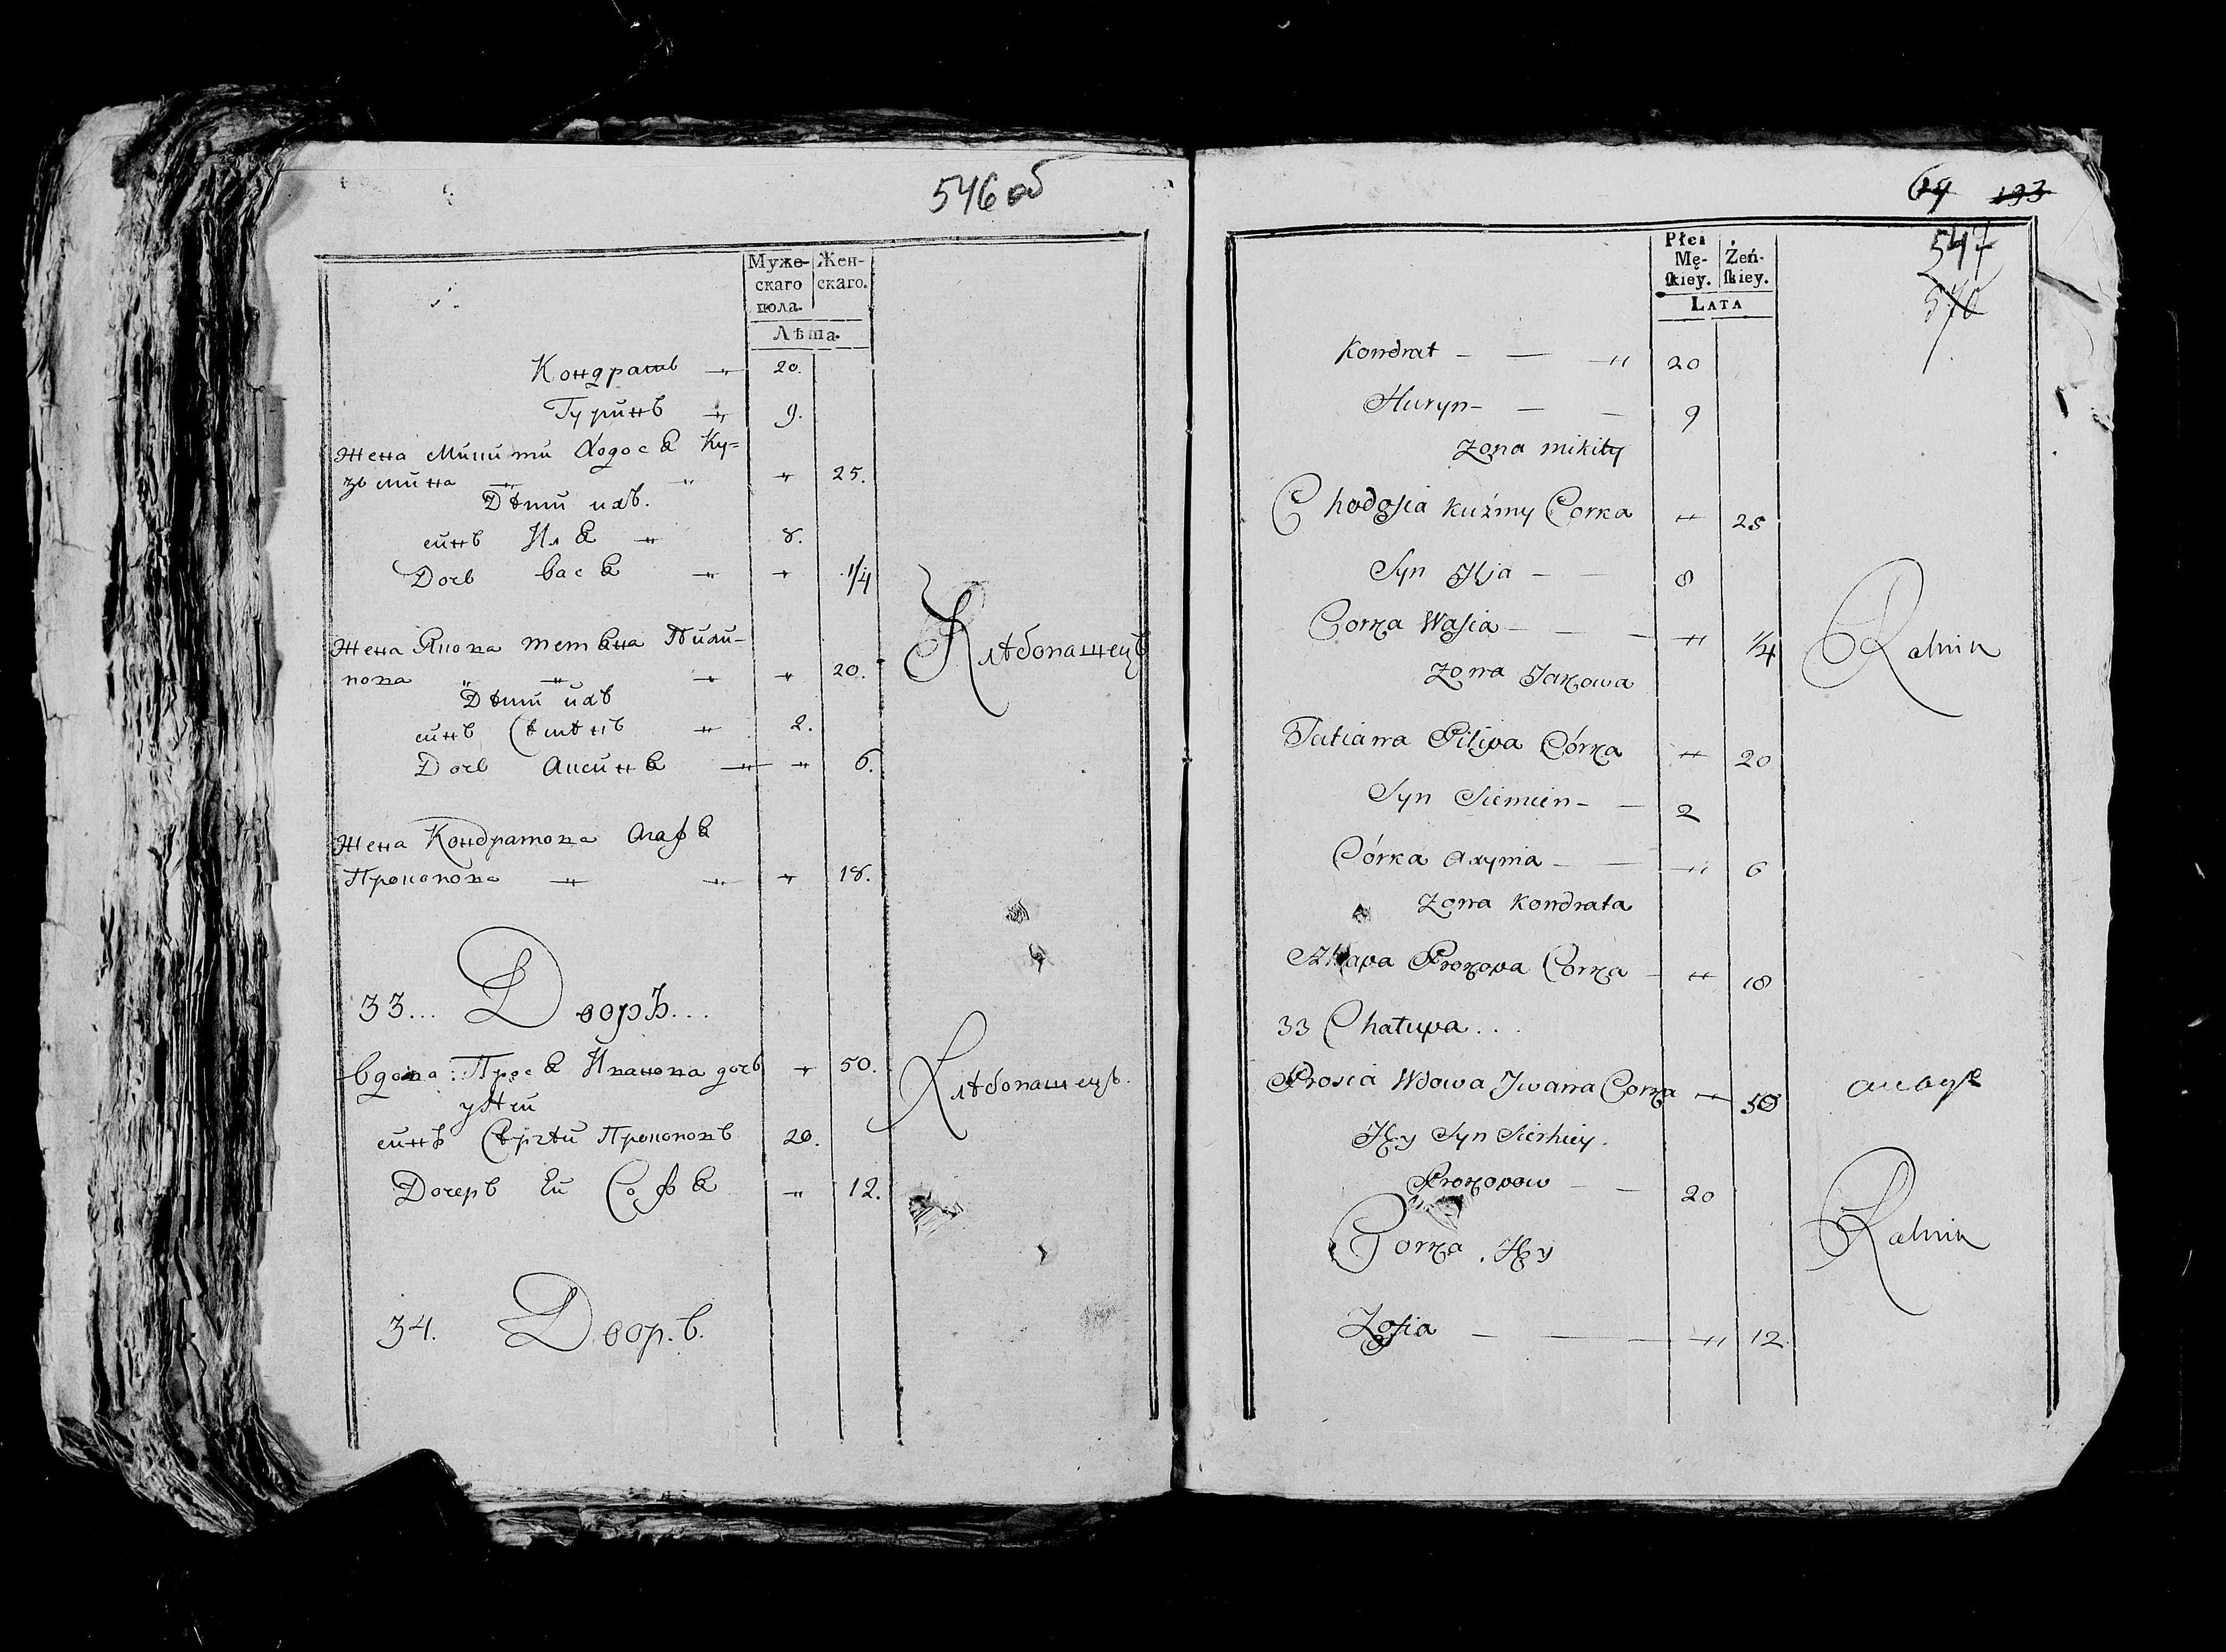 546 об
Муже-
скаго
пола.
Жен-
скаго.
Лѣта.
Кондратъ 20.
Гуринъ 9.
Жена Микити Ходося Ку=
зьмина " 25.
Дѣти ихъ.
синъ Иля " 8.
Дочь Вася " " 1/4
Жена Якова Тетяна Пили-
пова " " 20.
Дѣти ихъ
синъ Сѣмѣнъ " 2.
Дочь Аксиня " " 6.
Хлѣбопашецъ
Жена Кондратова Агафя
Прокопова " " " 18.
33... Дворъ...
Вдова: Прося Иванова дочь " 50.
у Ней
синъ Сѣргѣй Прокоповъ 20.
Дочерь Ей Софя " 12.
Хлѣбопашецъ.
34. Дворъ.
69 133
547
570
Płci
Mę-
ſkiey.
Żeń-
ſkiey.
LATA
Kondrat — — " 20
Huryn — — 9
Zona Mikity
Chodosia Kuźmy Corka " 25
Syn Ilja — — 8
Corka Wasia — — — " 1/4
Zona Jakowa
Rolnik
Tatiana Pilipa Córka " 20
Syn Siemien — — 2
Córka Axynia — — " 6
Zona Kondrata
Prokopa Corka — " 18
33 Chatupa...
Prosia Wdowa Jwana Corka " 50
Jey Syn Sierhiey.
Prokopow — — 20
Corka Jey
Rolnik
Zofia — — — " 12